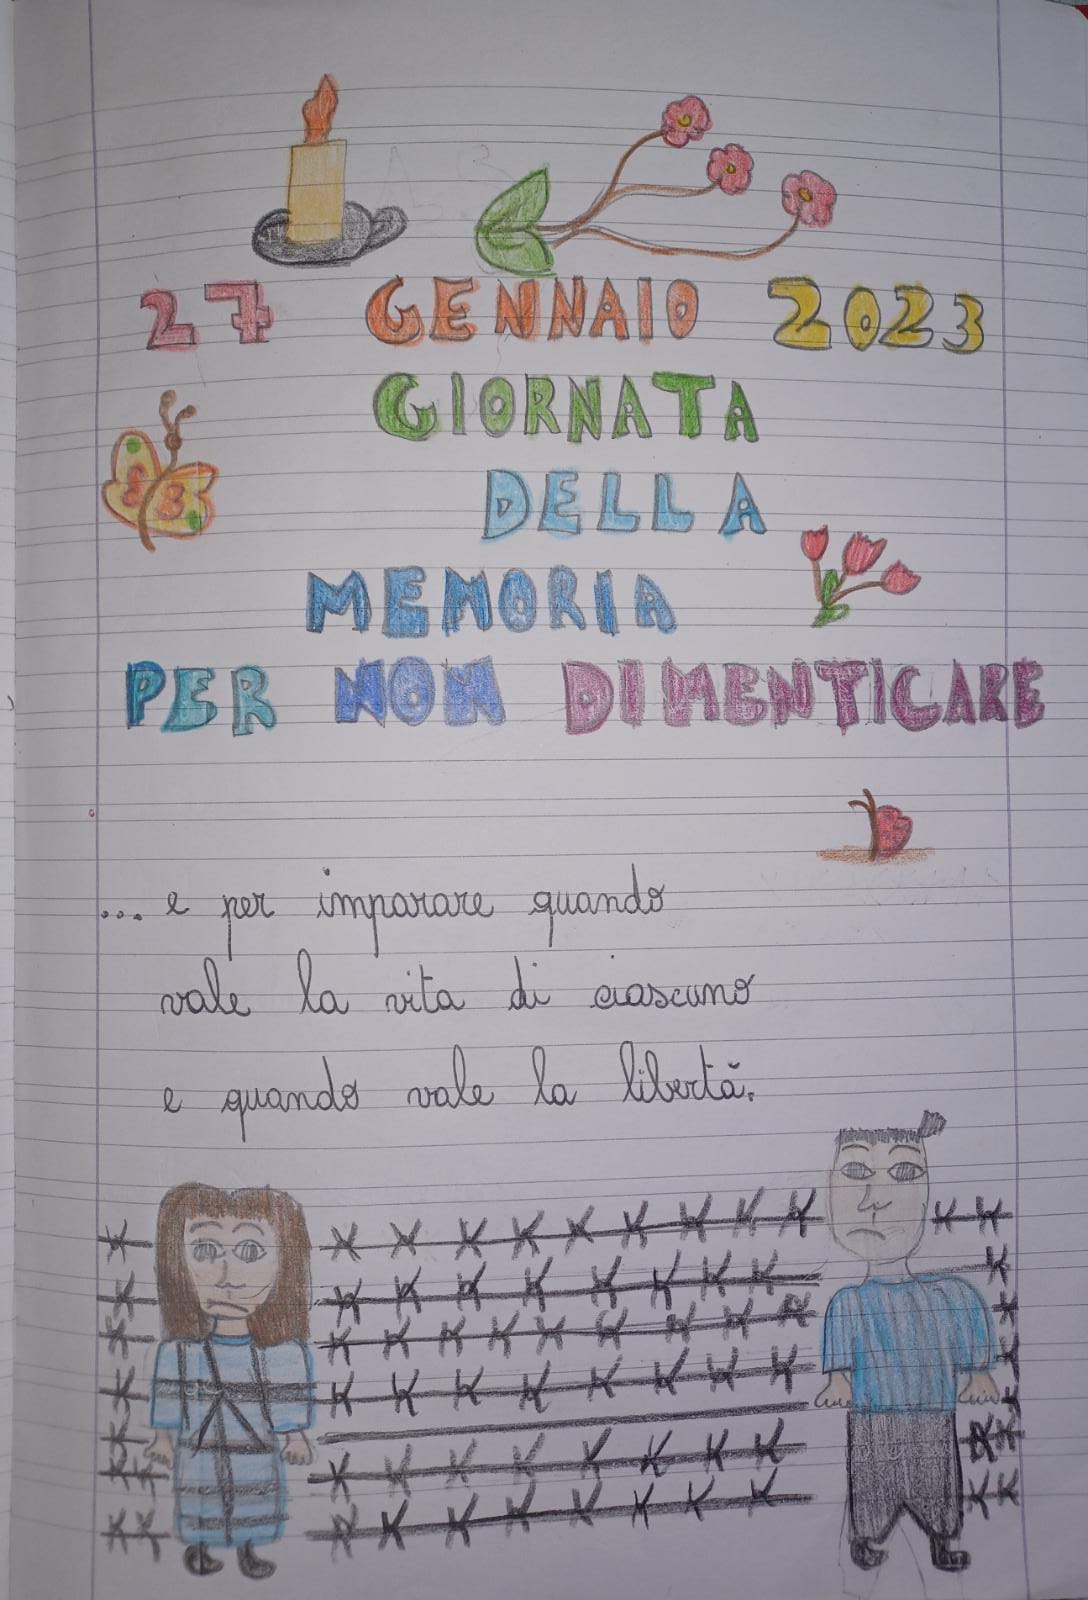 27 GENNAIO 2023
GIORNATA
DELLA
MEMORIA
PER NON DIMENTICARE
... e per imparare quando
vale la vita di ciascuno
e quando vale la libertà.